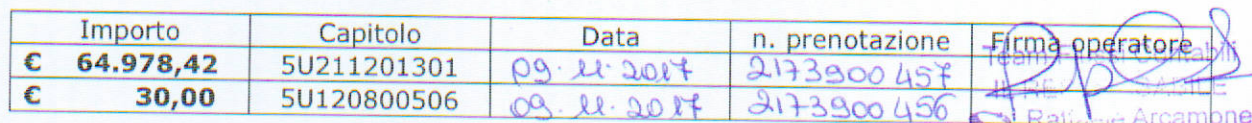 Importo Capitolo Data n. prenotazione Firma operatore
€ 64.978,42 5U211201301 09.11.2017 2173900457
€ 30,00 5U120800506 09.11.2017 2173900456
Arcamone